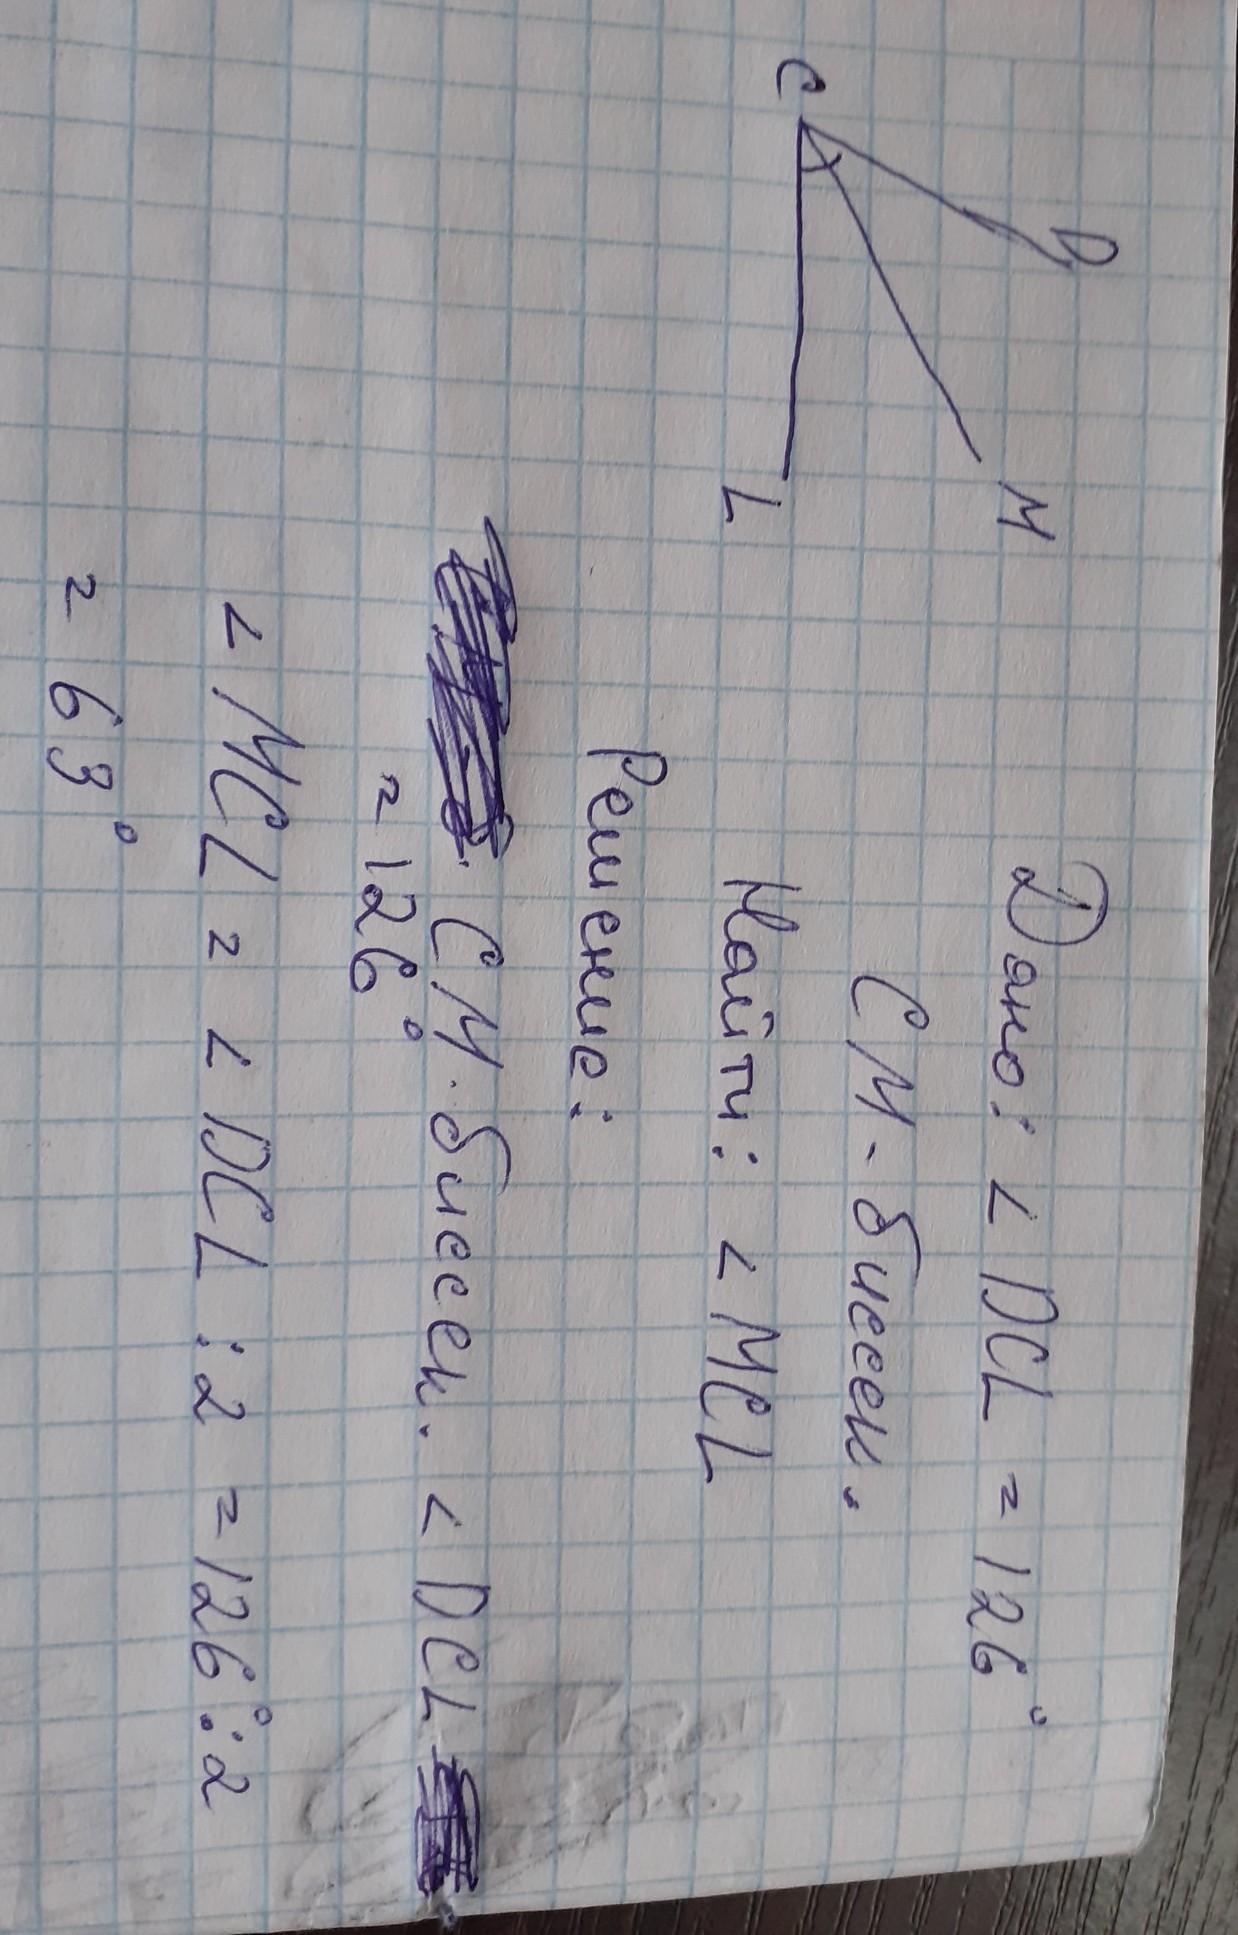 C
D
M
L
Дано: ∠ DCL = 126°
CM - биссек.
Найти: ∠ MCL
Решение:
CM. биссек. ∠ DCL
= 126°
∠ MCL = ∠ DCL : 2 = 126° : 2
= 63°